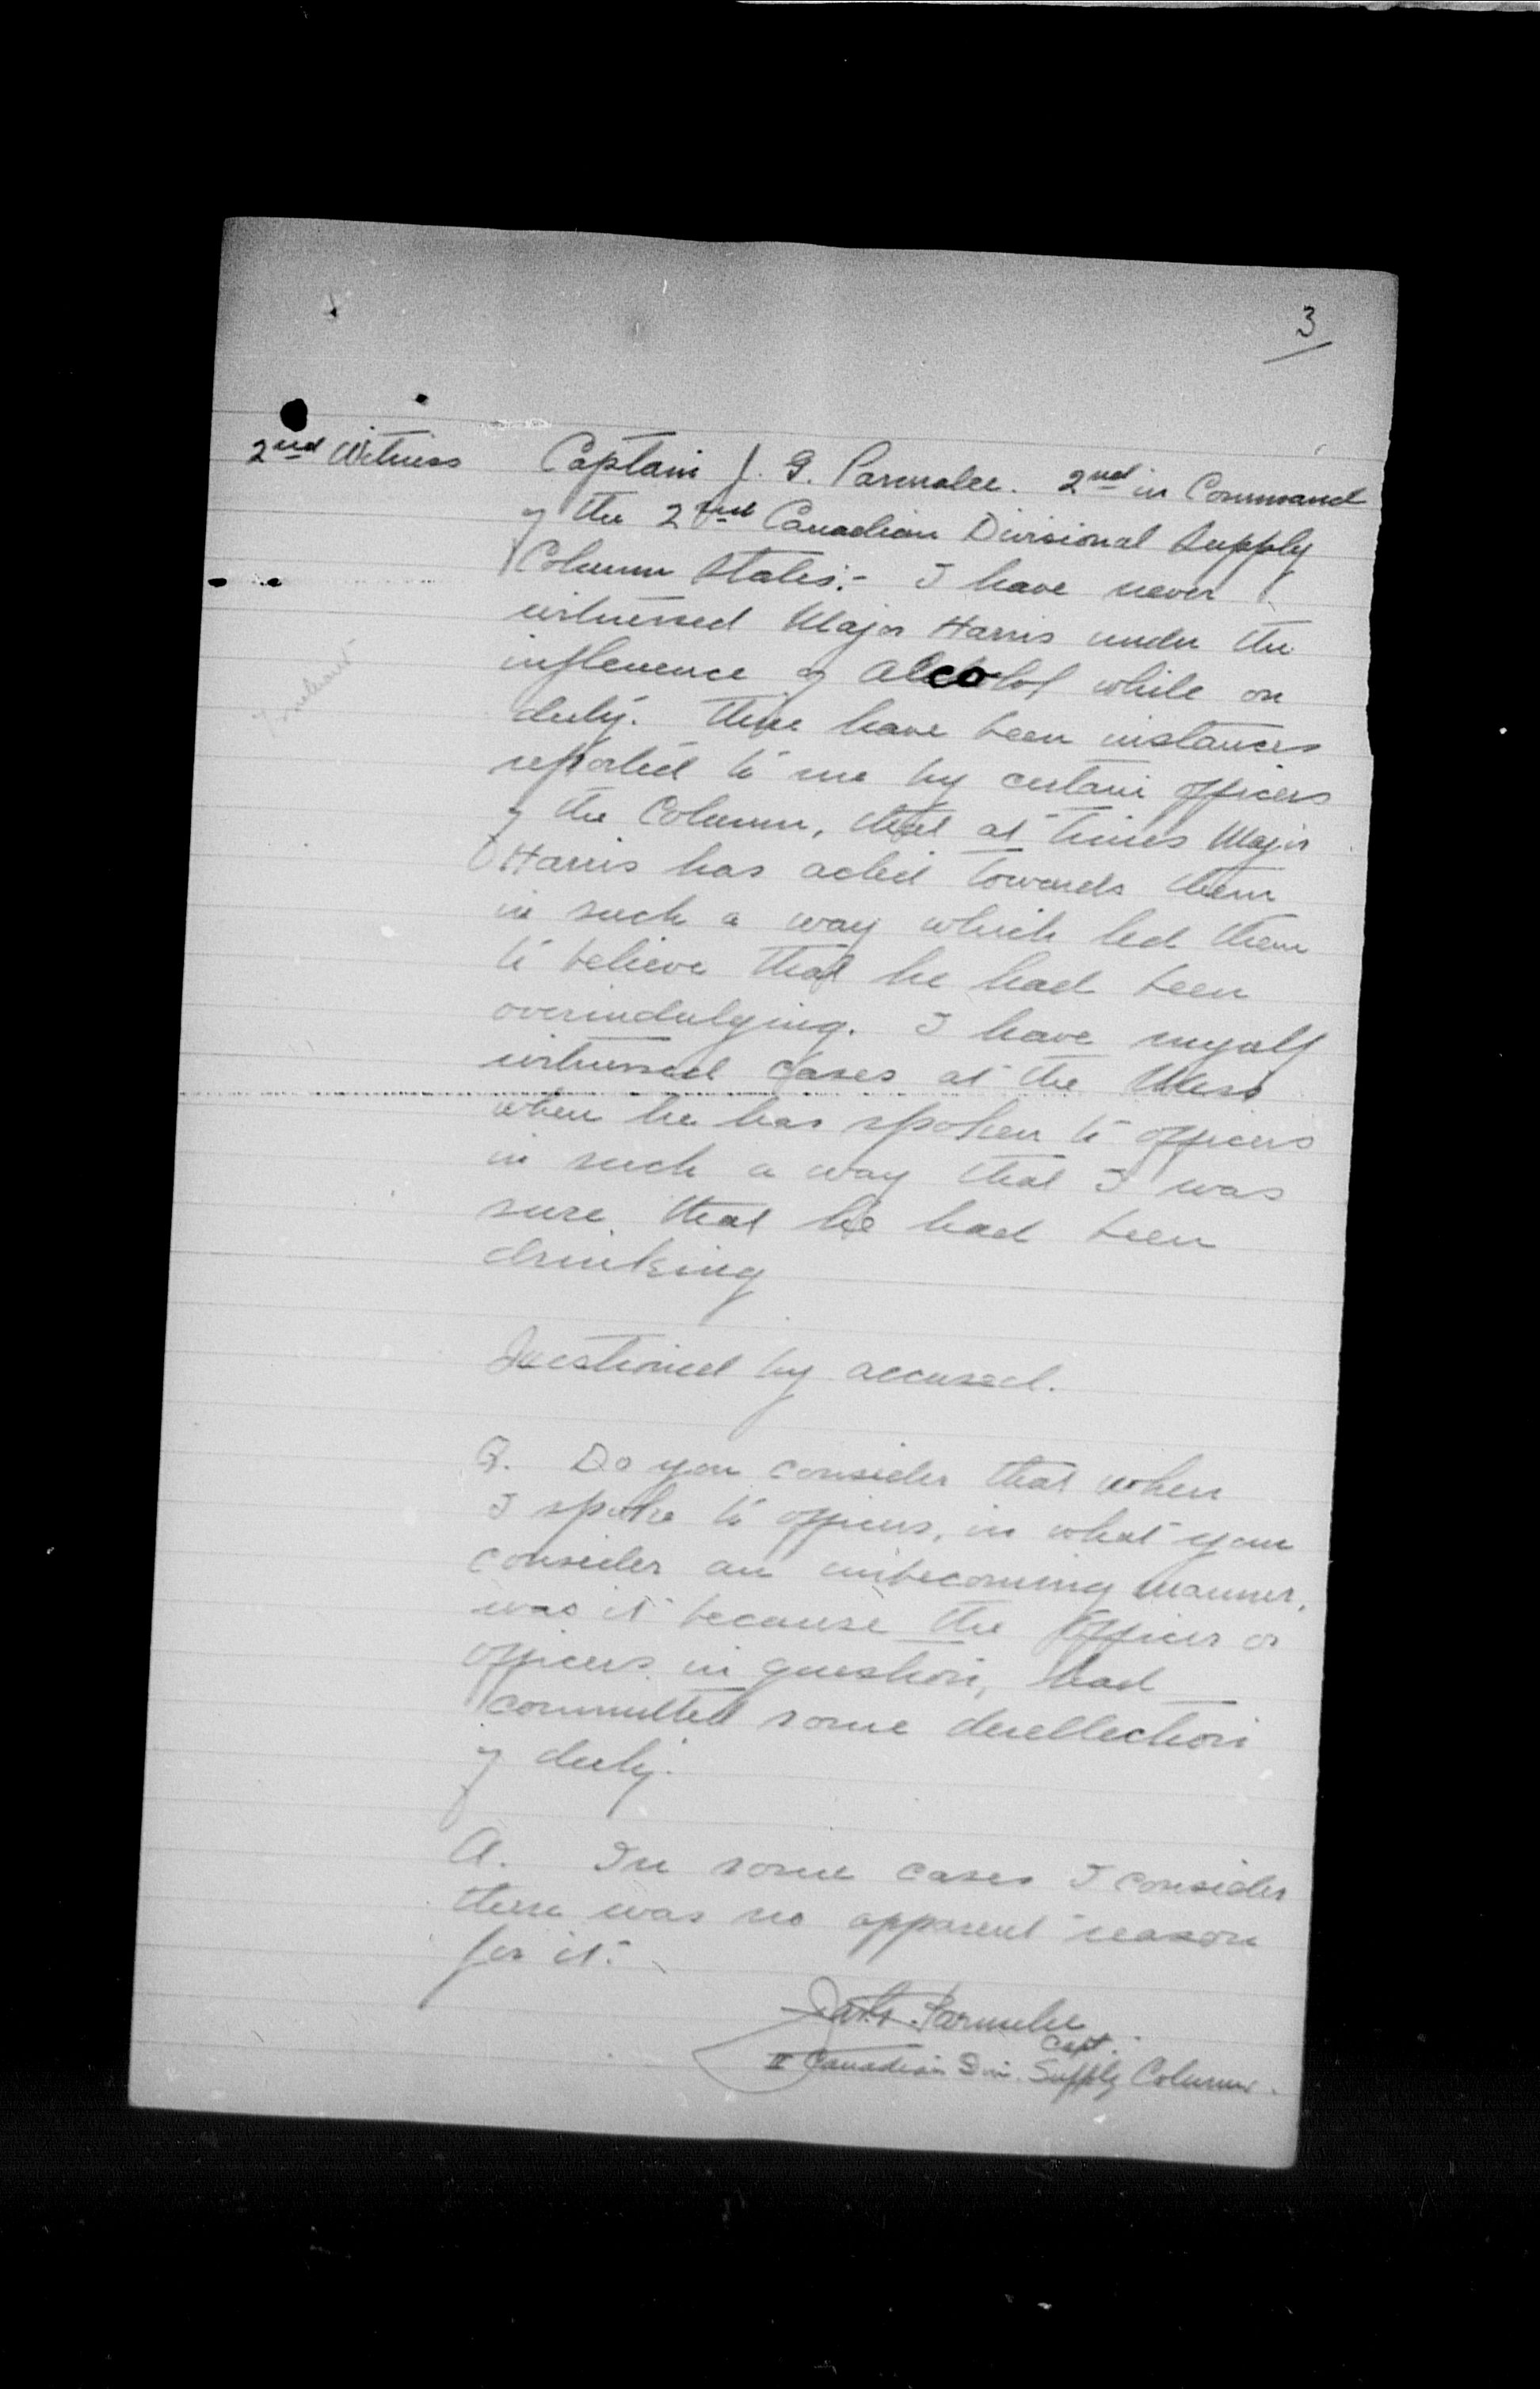 3
2nd Witness Captain J. G. Parmalee. 2nd in Command
of the 2nd Canadian Divisional Supply
Column States:- I have never
witnessed Major Harris under the
influence of alcohol while on
duty. There have been instances
reported to me by certain officers
of the Column, that at times Major
Harris has acted towards them
in such a way which led them
to believe that he had been
overindulging. I have myself
witnessed cases at the Mess
when he has spoken to officers
in such a way that I was
sure that he had been
drinking
Questioned by accused.
Q. Do you consider that when
I spoke to officers, in what you
consider an unbecoming manner,
was it because the officer or
officers in question, had
committed some derellection
of duty.
A. In some cases I consider
there was no apparent reason
for it.
Parmelee
Capt.
II Canadian Div. Supply Column.